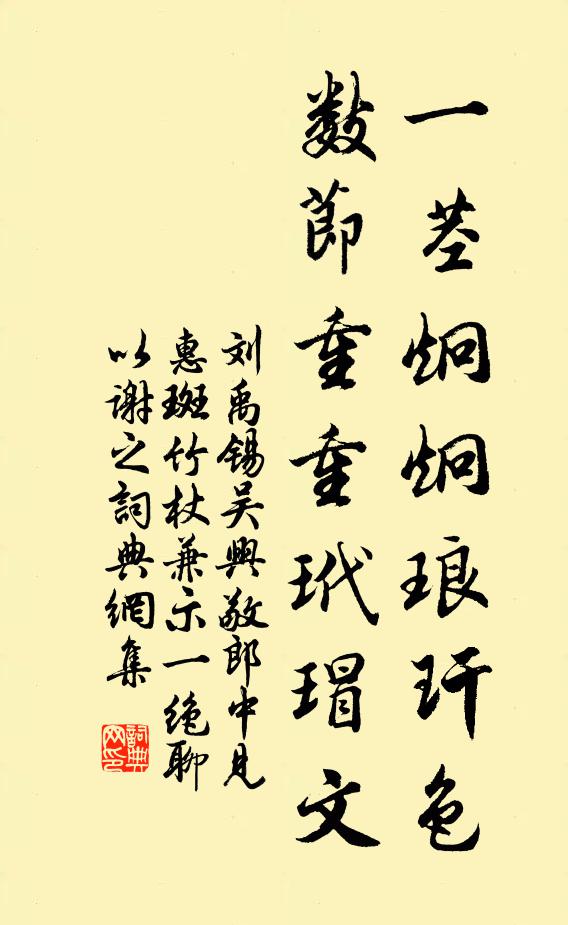 一茎炯炯琅玕色
数节重重玳瑁文
刘禹锡吴興敬郎中見
惠斑竹杖兼示一绝聊
以谢之詞典網集
詞典
网印